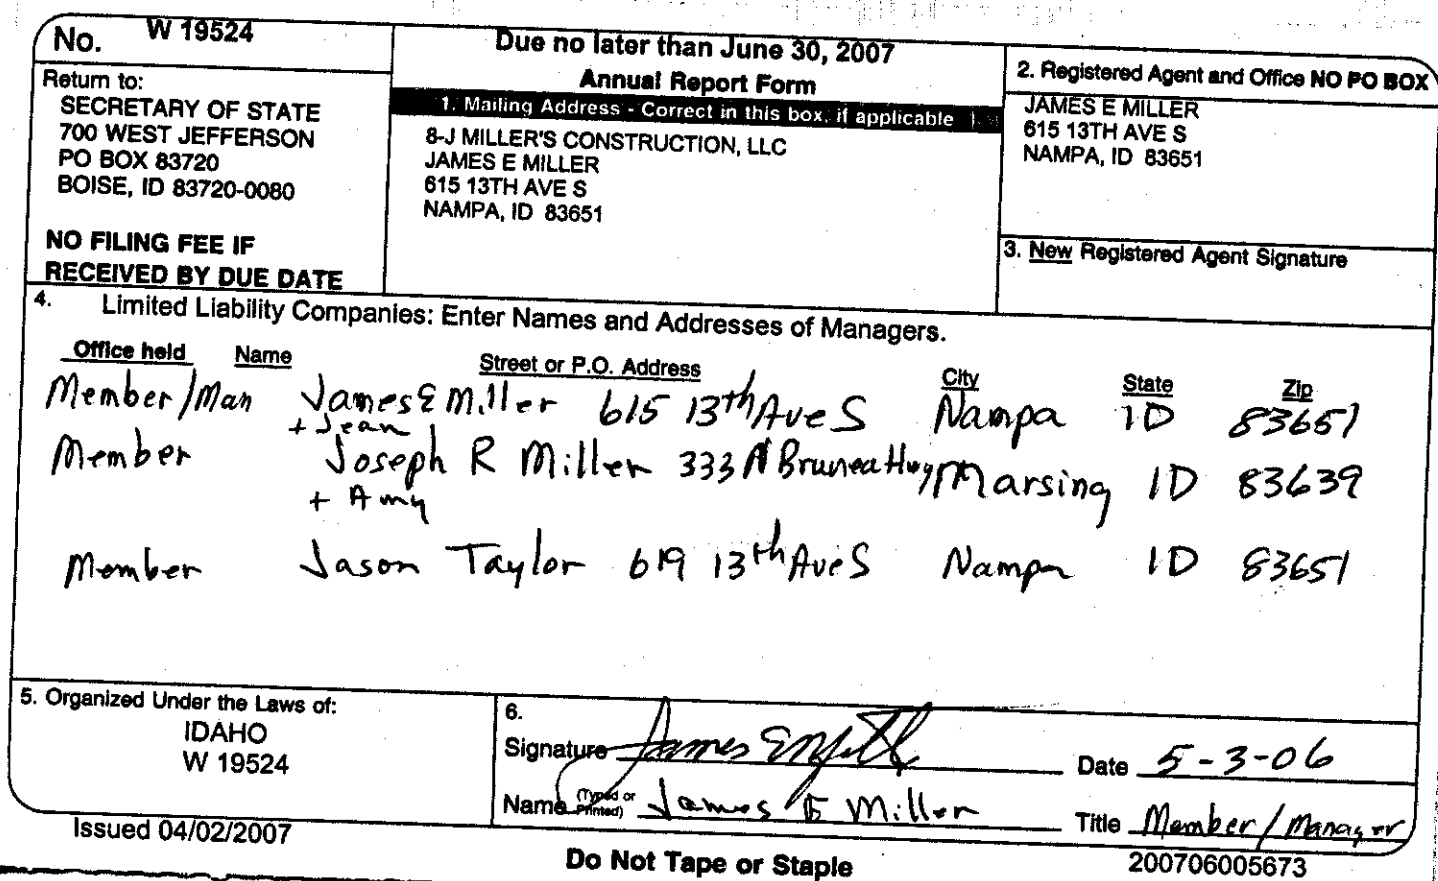 No. W 19524
Return to:
SECRETARY OF STATE
700 WEST JEFFERSON
PO BOX 83720
BOISE, ID 83720-0080
NO FILING FEE IF
RECEIVED BY DUE DATE
Due no later than June 30, 2007
Annual Report Form
1. Mailing Address - Correct in this box, if applicable
8-J MILLER'S CONSTRUCTION, LLC
JAMES E MILLER
615 13TH AVE S
NAMPA, ID 83651
2. Registered Agent and Office NO PO BOX
JAMES E MILLER
615 13TH AVE S
NAMPA, ID 83651
3. New Registered Agent Signature
4. Limited Liability Companies: Enter Names and Addresses of Managers.
Office held Name Street or P.O. Address City State Zip
Member/Man James E Miller 615 13th Ave S Nampa ID 83651
+ Jean
Member Joseph R Miller 333 N Brunea Hwy Marsing ID 83639
+ Amy
Member Jason Taylor 619 13th Ave S Nampa ID 83651
5. Organized Under the Laws of:
IDAHO
W 19524
6.
Signature James E Miller Date 5-3-06
Name (Typed or Printed) James E Miller Title Member/Manager
Issued 04/02/2007
Do Not Tape or Staple
200706005673